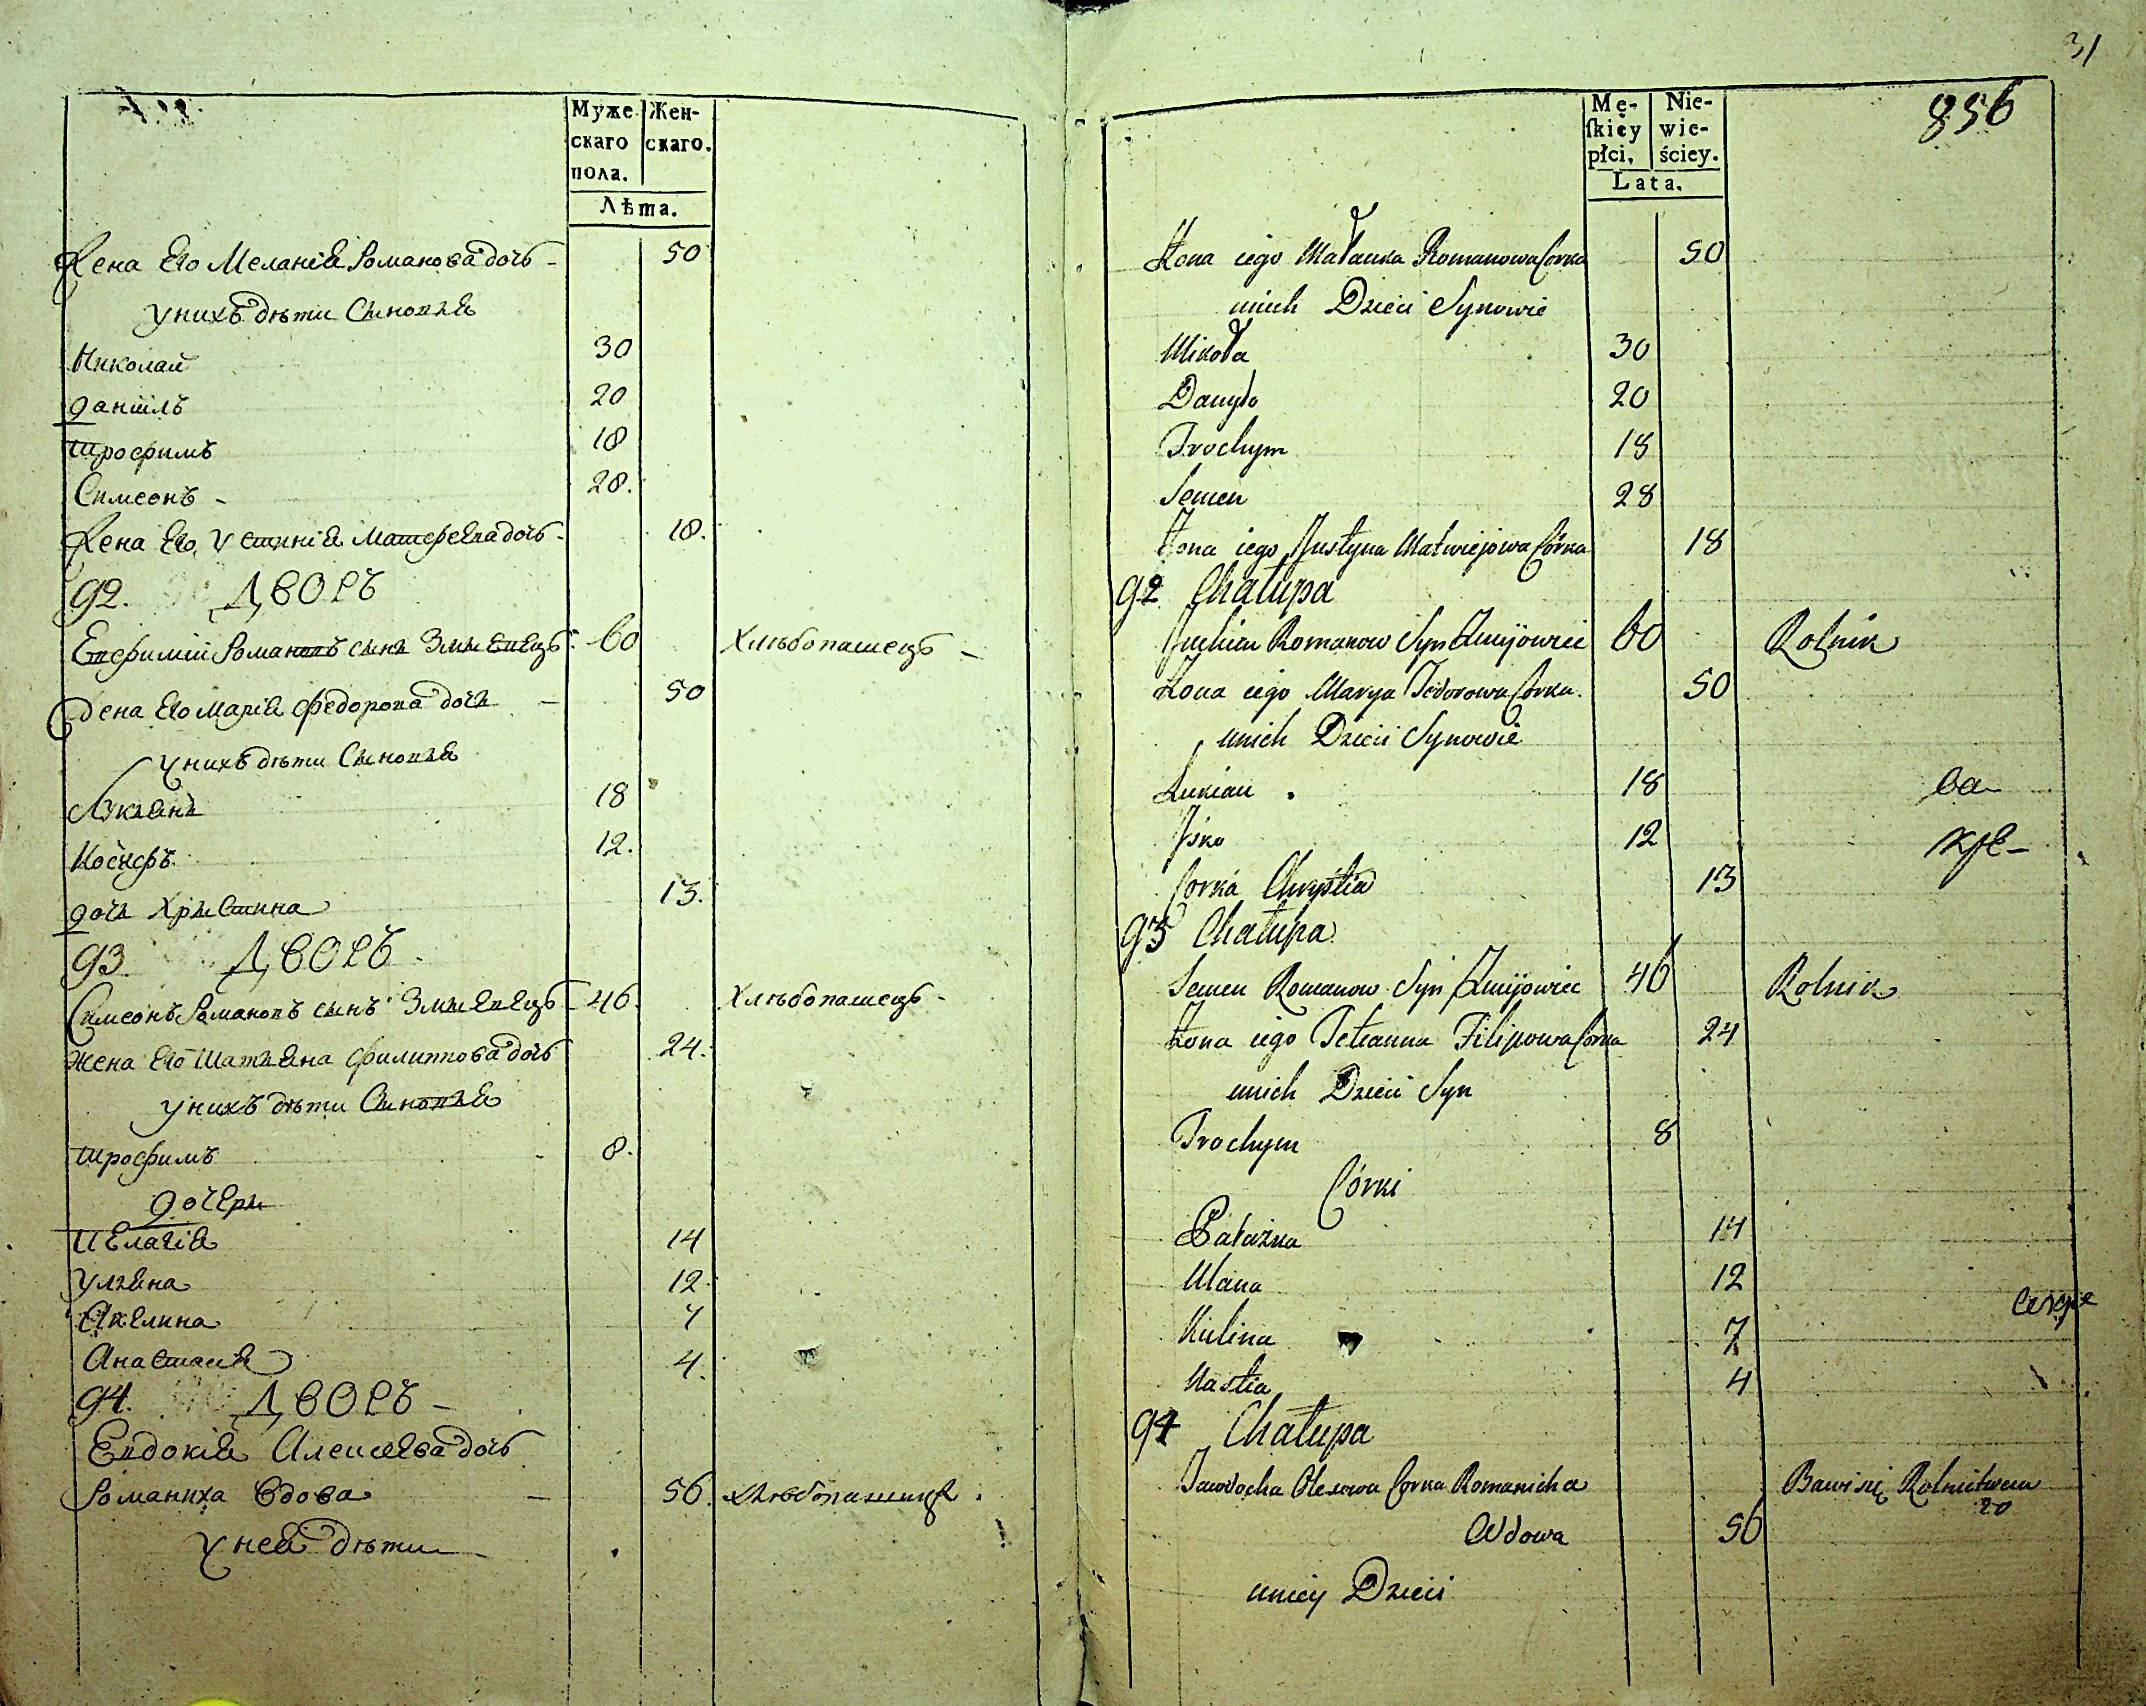 Муже- Жен-
скаго скаго.
пола.
Лѣта.
Жена Его Меланія Романова дочь - 50
у нихъ дѣти Сыновья
Николай 30
Даніилъ 20
Трофимъ 18
Симеонъ - 28.
Жена Его Устинія Матфеева дочь - 18.
92. ДВОРЪ
Евфимій Романовъ сынъ Змиевецъ - 60 Хлѣбопашецъ -
Жена Его Марія Федорова дочь - 50
у нихъ дѣти Сыновья
Лукьянъ 18
Иосифъ 12.
дочь Христина 13.
93. ДВОРЪ
Симеонъ Романовъ сынъ Змиевецъ 46. Хлѣбопашецъ -
Жена Его Татьяна Филиппова дочь 24.
у нихъ дѣти Сыновья
Трофимъ - 8.
дочери
Пелагія 14
Ульяна 12.
Акелина 7
Анастасия 4.
94. ДВОРЪ -
Евдокія Алексѣева дочь
Романиха Вдова - 56. Хлѣбопашица.
у нея дѣти
31
856
Mę- Nie-
ſkiey wie-
płci, ściey.
Lata.
Żona iego Małanka Romanowa Corka 50
unich Dzieci Synowie
Mikoła 30
Danyło 20
Trochym 18
Semen 28
Żona iego Justyna Matwiejowa Córka 18
92 Chałupa
Juchim Romanow Syn Zmijowiec 60 Rolnik
Żona iego Marya Fedorowa Córka. 50
unich Dzieci Synowie
Łukian 18
Jśko 12
Corka Chrystia 13
93 Chałupa
Semen Romanow Syn Zmijowiec 46 Rolnik
Żona iego Tetianna Filipowa Córka 24
unich Dzieci Syn
Trochym 8
Córki
Pałażka 14
Ulana 12
Kulina 7
Nastia 4
94 Chałupa
Jawdocha Olexowa Corka Romanicha Bawi się Rolnictwem
20
Wdowa 56
uniey Dzieci